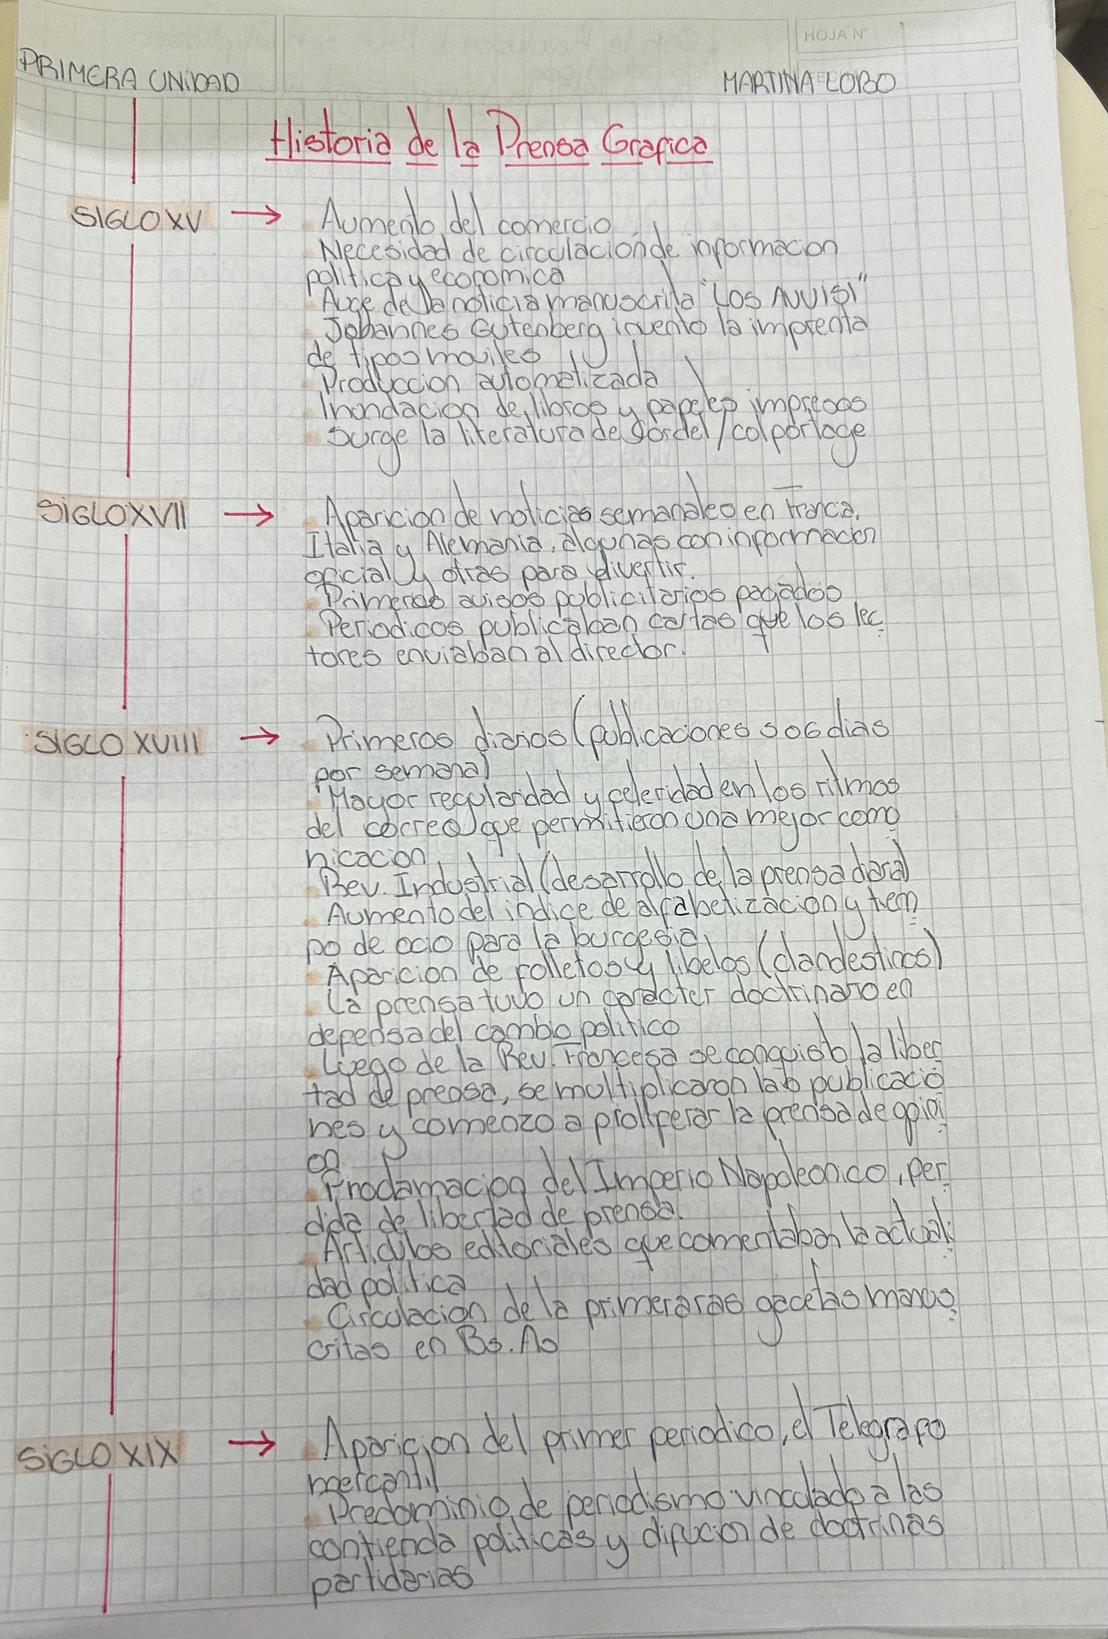 HOJA N°
PRIMERA UNIDAD
MARTINA LOBO
Historia de la Prensa Grafica
SIGLO XV → Aumento del comercio
Necesidad de circulacion de informacion
politica y economica
Auge de la noticia manuscrita "Los Avvisi"
Johannes Gutenberg invento la imprenta
de tipos moviles
Produccion automatizada
Inondacion de libros y papeles impresos
Surge la literatura de gordel/colportage
SIGLO XVII → Aparicion de noticias semanales en Francia,
Italia y Alemania, algunas con informacion
oficial y otras para divertir.
Primeros avisos publicitarios pagados
Periodicos publicaban cartas que los lec
tores enviaban al director.
SIGLO XVIII → Primeros diarios (publicaciones 5 o 6 dias
por semana)
Mayor regularidad y celeridad en los ritmos
del correo que permitieron una mejor comu
nicacion
Rev. Industrial (desarrollo de la prensa diaria)
Aumento del indice de alfabetizacion y tiem
po de ocio para la burgesia
Aparicion de folletos y libelos (clandestinos)
La prensa tuvo un caracter doctrinario en
defensa del cambio politico
Luego de la Rev. Francesa se conquisto la liber
tad de prensa, se multiplicaron las publicacio
nes y comenzo a proliferar la prensa de opini
on
Proclamacion del Imperio Napoleonico, per
dida de libertad de prensa.
Articulos editoriales que comentaban la actuali
dad politica
Circulacion de la primeraras gacetas manus
critas en Bs. As
SIGLO XIX → Aparicion del primer periodico, el Telegrafo
mercantil
Predominio de periodismo vinculado a las
contienda politicas y difucion de doctrinas
partidarias